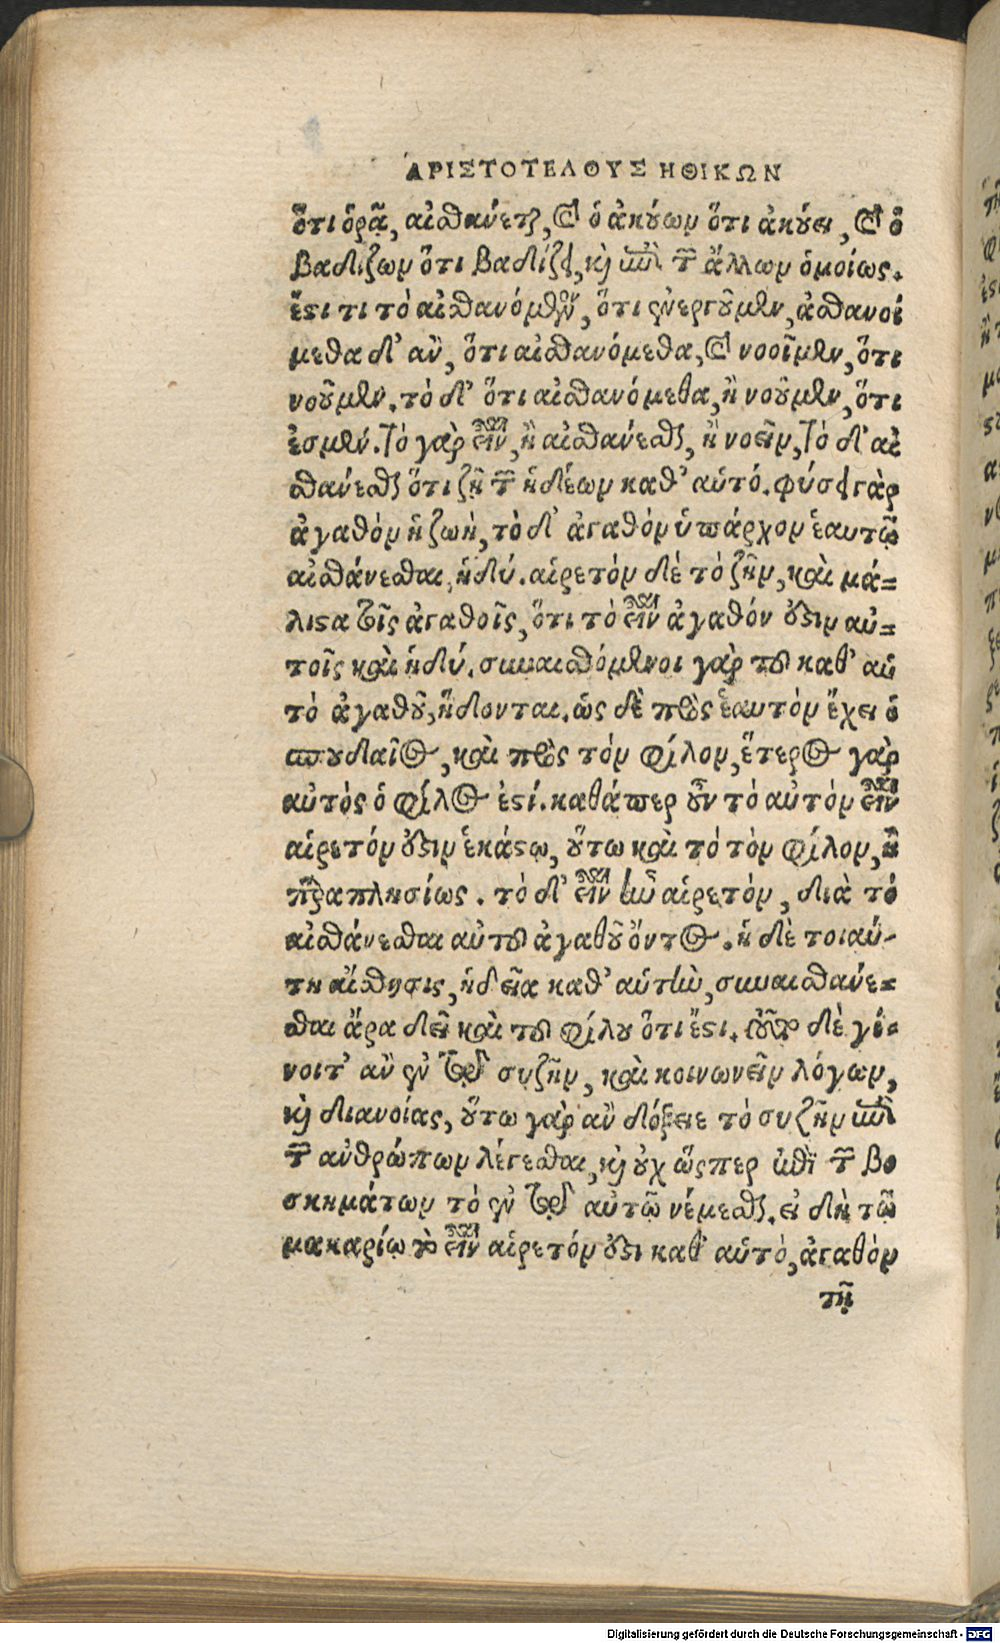 ἈΡΙΣΤΟΤΕΛΟΥΣ ΗΘΙΚΩΝ
ὅτι ὁρᾷ, αἰσθάνεται, καὶ ὁ ἀκούων ὅτι ἀκούει, καὶ ὁ
βαδίζων ὅτι βαδίζει, καὶ ἐπὶ τῶν ἄλλων ὁμοίως.
ἔστι τι τὸ αἰσθανόμενον, ὅτι ἐνεργοῦμεν, αἰσθανοί
μεθα δ' ἂν, ὅτι αἰσθανόμεθα, καὶ νοοῖμεν, ὅτι
νοοῦμεν. τὸ δ' ὅτι αἰσθανόμεθα, ἢ νοοῦμεν, ὅτι
ἐσμέν. τὸ γὰρ εἶναι, ἢ αἰσθάνεσθαι, ἢ νοεῖν, τὸ δ' αἰ
σθάνεσθαι ὅτι ζῇ τῶν ἡδέων καθ' αὑτό. φύσει γὰρ
ἀγαθὸν ἡ ζωὴ, τὸ δ' ἀγαθὸν ὑπάρχον ἑαυτῷ
αἰσθάνεσθαι, ἡδύ. αἱρετὸν δὲ τὸ ζῇν, καὶ μά=
λιστα τοῖς ἀγαθοῖς, ὅτι τὸ εἶναι ἀγαθόν ἐστιν αὐ=
τοῖς καὶ ἡδύ. συναισθόμενοι γὰρ τοῦ καθ' αὑ
τὸ ἀγαθοῦ, ἥδονται. ὡς δὲ πρὸς ἑαυτὸν ἔχει ὁ
σπουδαῖος, καὶ πρὸς τὸν φίλον, ἕτερος γὰρ
αὐτὸς ὁ φίλος ἐστί. καθάπερ οὖν τὸ αὐτὸν εἶναι
αἱρετόν ἐστιν ἑκάστῳ, οὕτω καὶ τὸ τὸν φίλον, ἢ
παραπλησίως. τὸ δ' εἶναι ἦν αἱρετὸν, διὰ τὸ
αἰσθάνεσθαι αὐτοῦ ἀγαθοῦ ὄντος. ἡ δὲ τοιαύ-
τη αἴσθησις, ἡδεῖα καθ' αὑτὴν, συναισθάνε=
σθαι ἄρα δεῖ καὶ τοῦ φίλου ὅτι ἔστι. τοῦτο δὲ γέ=
νοιτ' ἂν ἐν τῷ συζῇν, καὶ κοινωνεῖν λόγων,
καὶ διανοίας, οὕτω γὰρ ἂν δόξειε τὸ συζῇν ἐπὶ
τῶν ἀνθρώπων λέγεσθαι, καὶ οὐχ ὥσπερ ἐπὶ τῶν βο
σκημάτων τὸ ἐν τῷ αὐτῷ νέμεσθαι. εἰ δὴ τῷ
μακαρίῳ τὸ εἶναι αἱρετόν ἐστι καθ' αὑτὸ, ἀγαθὸν
τῇ
Digitalisierung gefördert durch die Deutsche Forschungsgemeinschaft - DFG